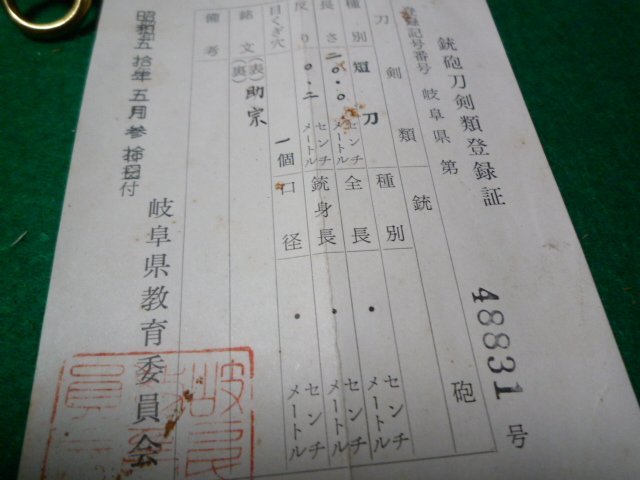 銃砲刀剣類登録証
登録記号番号 岐阜県 第 48831 号
刀剣類
銃砲
種別 短刀
種別
長さ 二〇.〇 センチメートル
全長 ・ センチメートル
反り 〇.二 センチメートル
銃身長 ・ センチメートル
目くぎ穴 一個
口径 ・ センチメートル
銘文 (表) 助宗
(裏)
備考
昭和五拾年五月参拾日付
岐阜県教育委員会